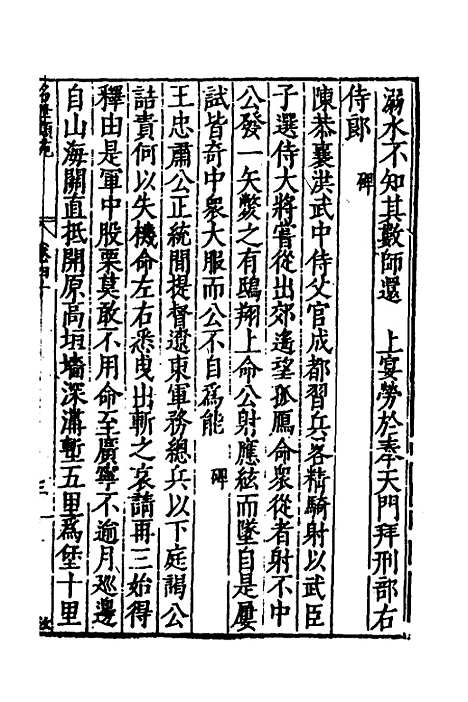 溺水不知其數師還　上宴勞於奉天門拜刑部右
侍郎　碑
陳恭襄洪武中侍父官成都習兵客精騎射以武臣
子選侍大將嘗從出郊遙望孤鴈命衆從者射不中
公發一矢斃之有鴟翔上命公射應絃而墜自是屢
試皆奇中衆大服而公不自爲能　碑
王忠肅公正統間提督遼東軍務總兵以下庭謁公
詰責何以失機命左右悉曳出斬之哀請再三始得
釋由是軍中股栗莫敢不用命至廣寧不逾月廵邊
自山海關直抵開原高垣墻深溝塹五里爲堡十里